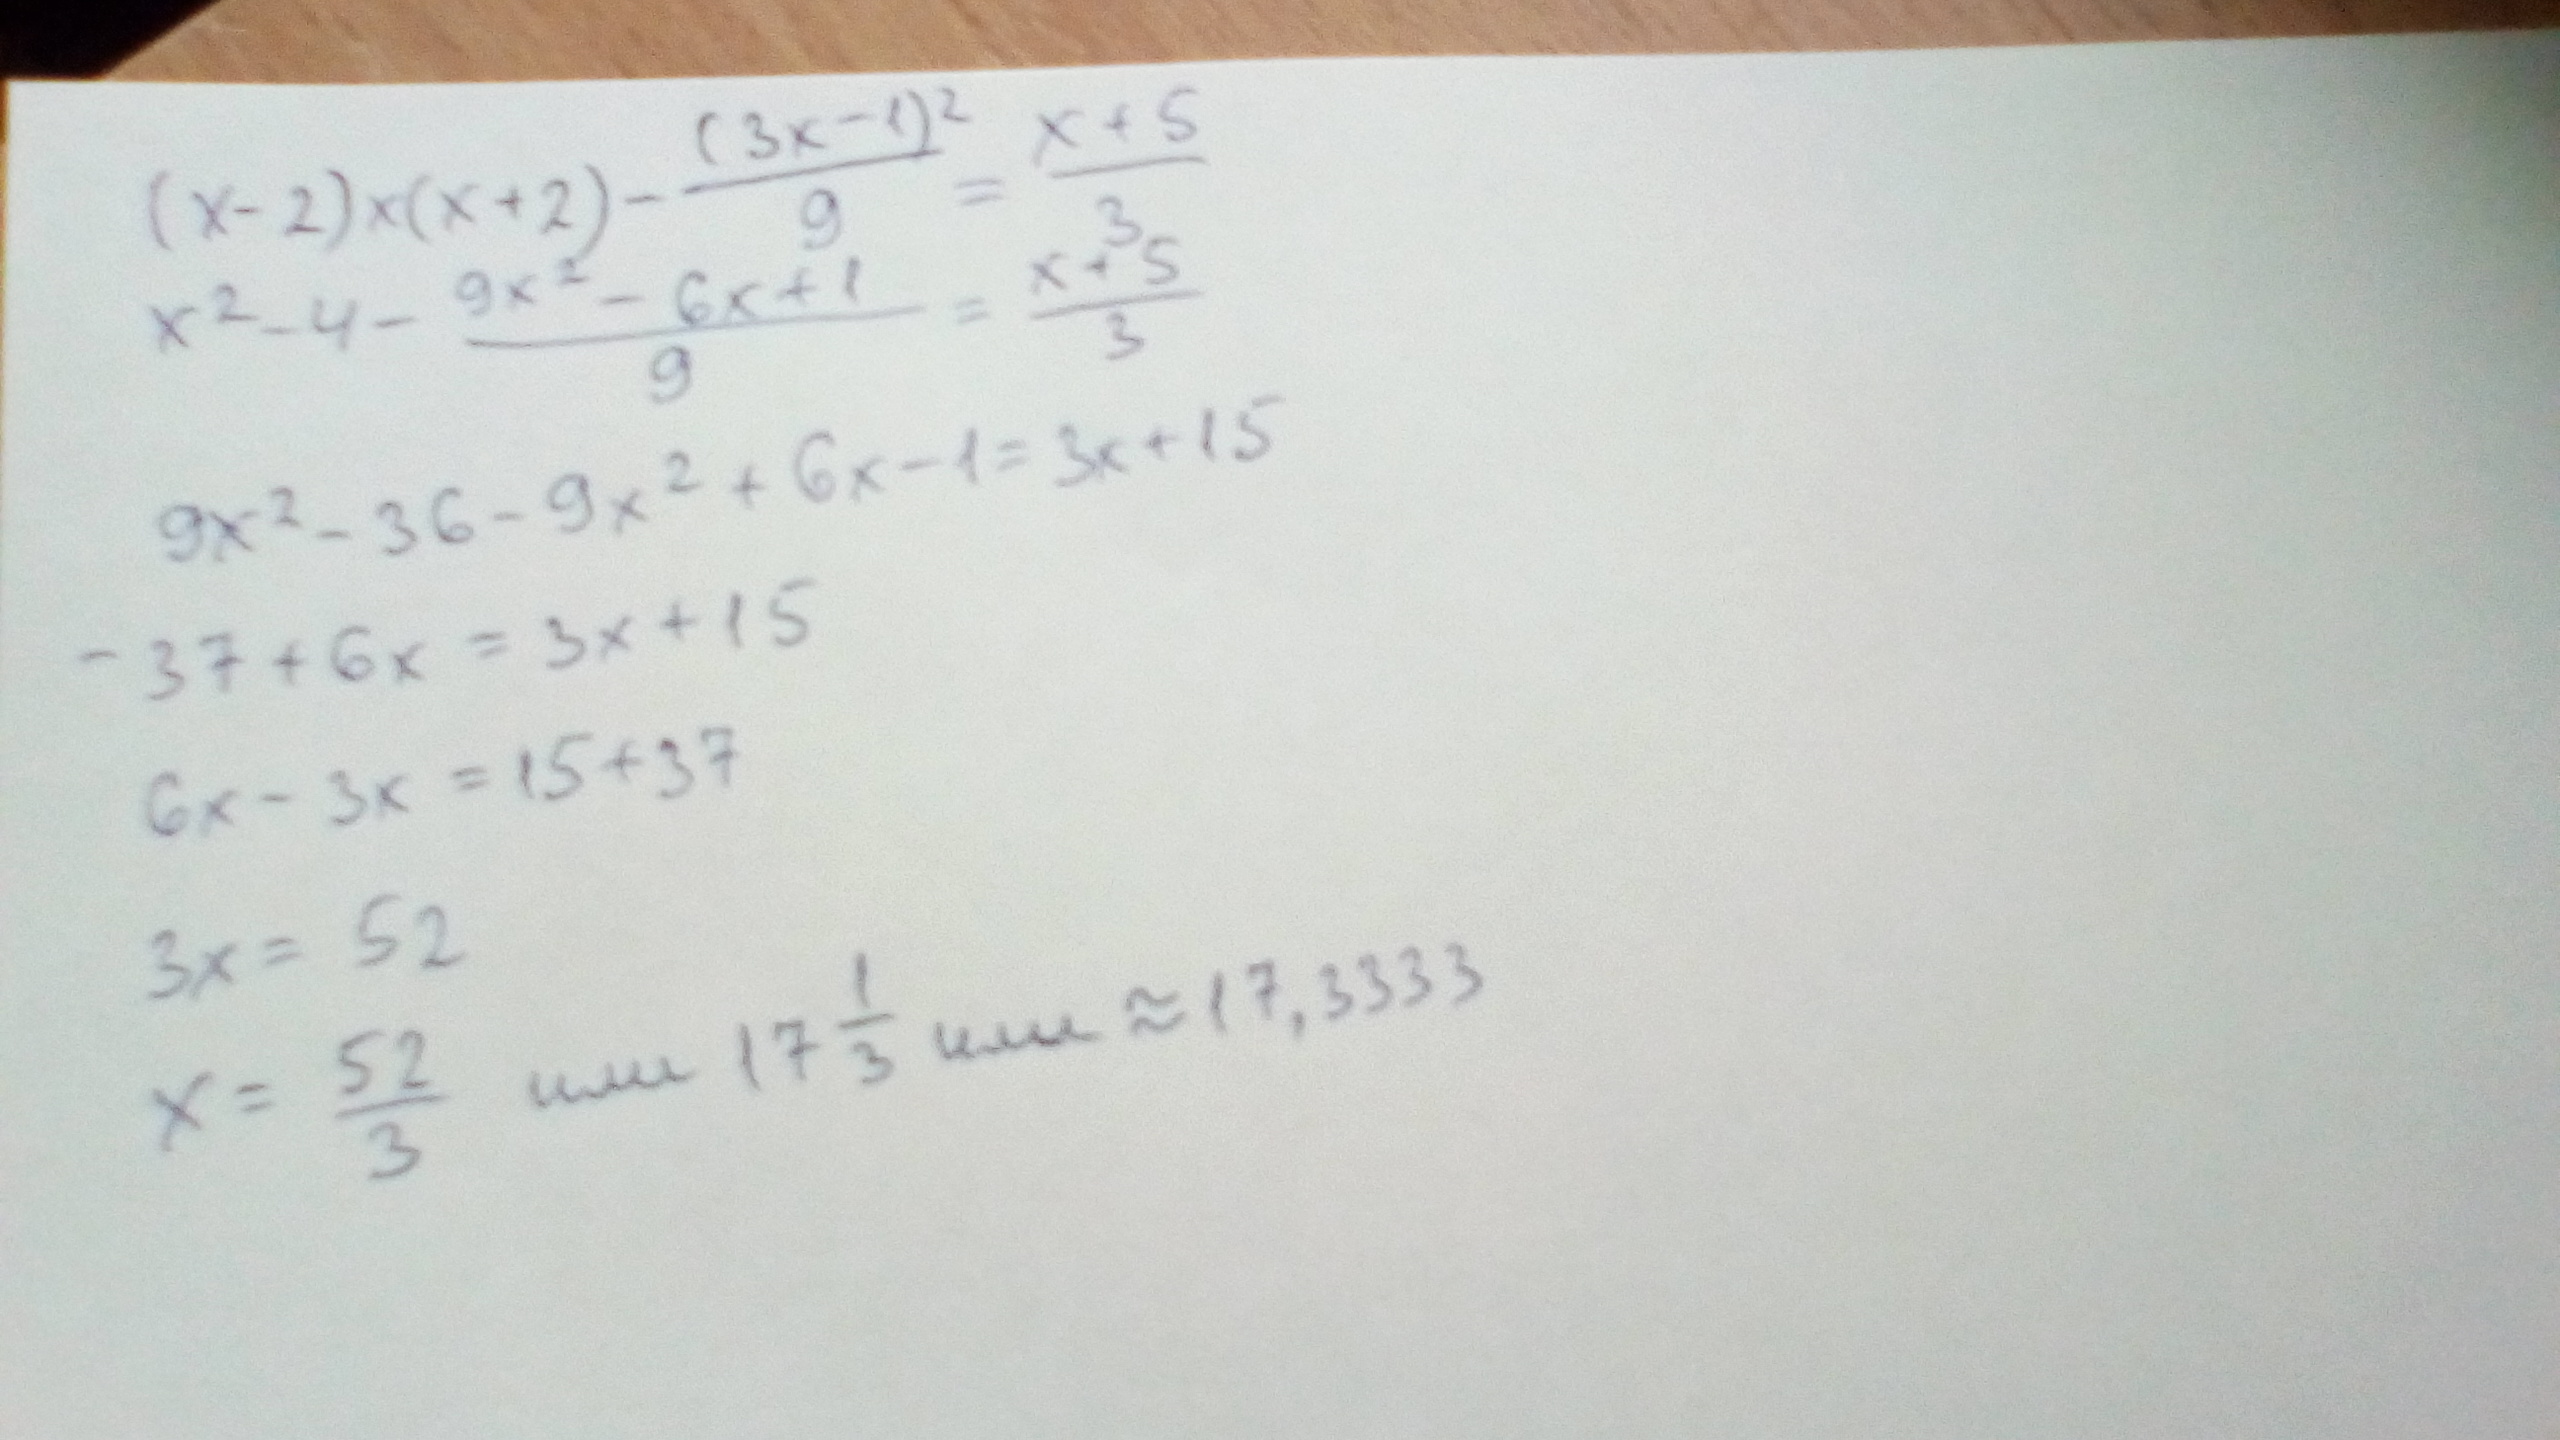 (x-2)×(x+2)-(3x-1)²/9 = x+5/3
x²-4-9x²-6x+1/9 = x+5/3
9x²-36-9x²+6x-1=3x+15
-37+6x=3x+15
6x-3x=15+37
3x=52
x=52/3 или 17 1/3 или ≈17,3333